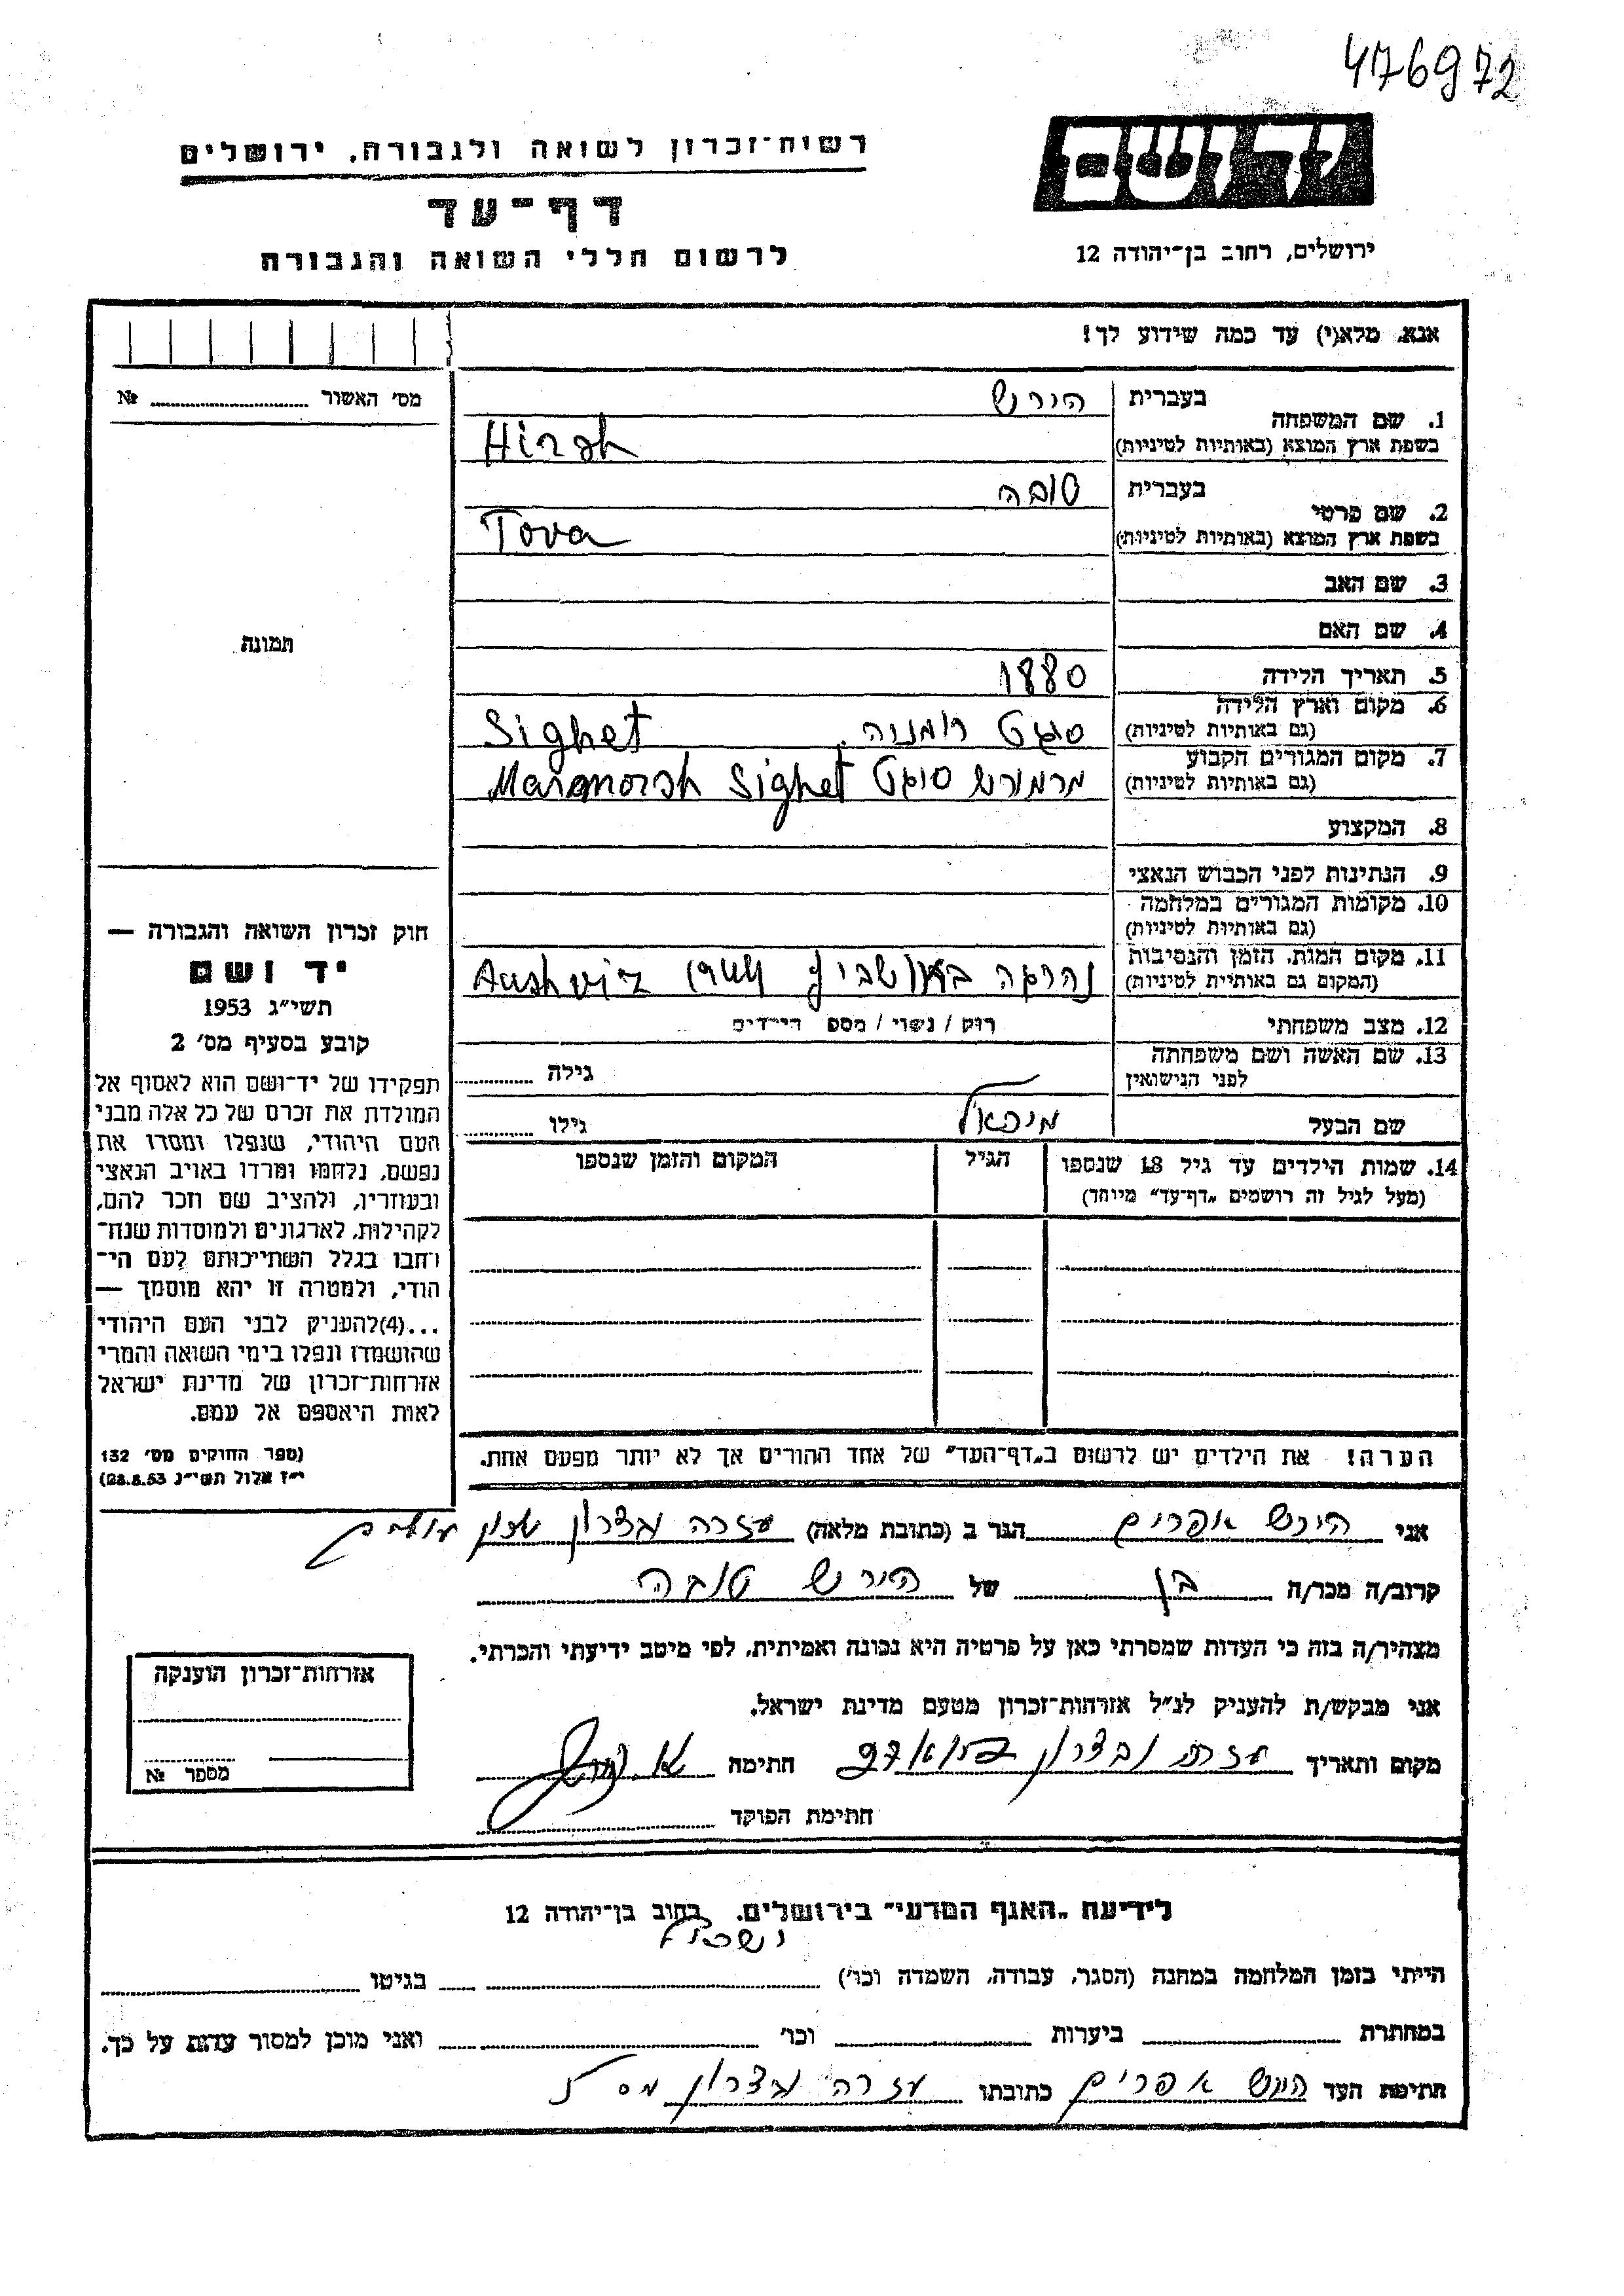 476972
יד ושם
רשות־זכרון לשואה ולגבורה, ירושלים
דף־עד
לרשום חללי השואה והגבורה
ירושלים, רחוב בן־יהודה 12
אנא, מלא(י) עד כמה שידוע לך!
מס׳ האשור № 
1. שם המשפחה
בעברית הירש
בשפת ארץ המוצא (באותיות לטיניות) Hirsh
2. שם פרטי
בעברית טובה
בשפת ארץ המוצא (באותיות לטיניות) Tova
3. שם האב
4. שם האם
תמונה
5. תאריך הלידה 1880
6. מקום וארץ הלידה
(גם באותיות לטיניות) סיגט רומניה. Sighet
7. מקום המגורים הקבוע
(גם באותיות לטיניות) מרמורש סיגט Maramorsh Sighet
8. המקצוע
9. הנתינות לפני הכבוש הנאצי
10. מקומות המגורים במלחמה
(גם באותיות לטיניות)
11. מקום המות, הזמן והנסיבות
(המקום גם באותיות לטיניות) נהרגה באושביץ 1944 Aushviz
12. מצב משפחתי רוק / נשוי / מספ הילדים
13. שם האשה ושם משפחתה
לפני הנישואין גילה
שם הבעל מיכאל גילו
14. שמות הילדים עד גיל 18 שנספו
(מעל לגיל זה רושמים „דף־עד״ מיוחד)
הגיל
המקום והזמן שנספו
חוק זכרון השואה והגבורה —
יד ושם
תשי״ג 1953
קובע בסעיף מס׳ 2
תפקידו של יד־ושם הוא לאסוף אל
המולדת את זכרם של כל אלה מבני
העם היהודי, שנפלו ומסרו את
נפשם, נלחמו ומרדו באויב הנאצי
ובעוזריו, ולהציב שם וזכר להם,
לקהילות, לארגונים ולמוסדות שנח־
רחבו בגלל השתייכותם לעם הי־
הודי, ולמטרה זו יהא מוסמך —
...(4)להעניק לבני העם היהודי
שהושמדו ונפלו בימי השואה והמרי
אזרחות־זכרון של מדינת ישראל
לאות היאספם אל עמם.
(ספר החוקים מס׳ 132
י״ז אלול תשי״ג 28.8.53)
הערה! את הילדים יש לרשום ב„דף־העד״ של אחד ההורים אך לא יותר מפעם אחת.
אני הירש אפרים הגר ב (כתובת מלאה) עזרה ובצרון שכון עולים
קרוב/ה מכר/ה בן של הירש טובה
מצהיר/ה בזה כי העדות שמסרתי כאן על פרטיה היא נכונה ואמיתית, לפי מיטב ידיעתי והכרתי.
אני מבקש/ת להעניק לנ״ל אזרחות־זכרון מטעם מדינת ישראל.
מקום ותאריך עזרה ובצרון חתימה
חתימת הפוקד
אזרחות־זכרון הוענקה
מספר №
לידיעת „האגף המדעי״ בירושלים, רחוב בן־יהודה 12
הייתי בזמן המלחמה במחנה (הסגר, עבודה, השמדה וכו׳) בגיטו
במחתרת ביערות וכו׳ ואני מוכן למסור עדות על כך.
חתימת העד הירש אפרים כתובתו עזרה ובצרון